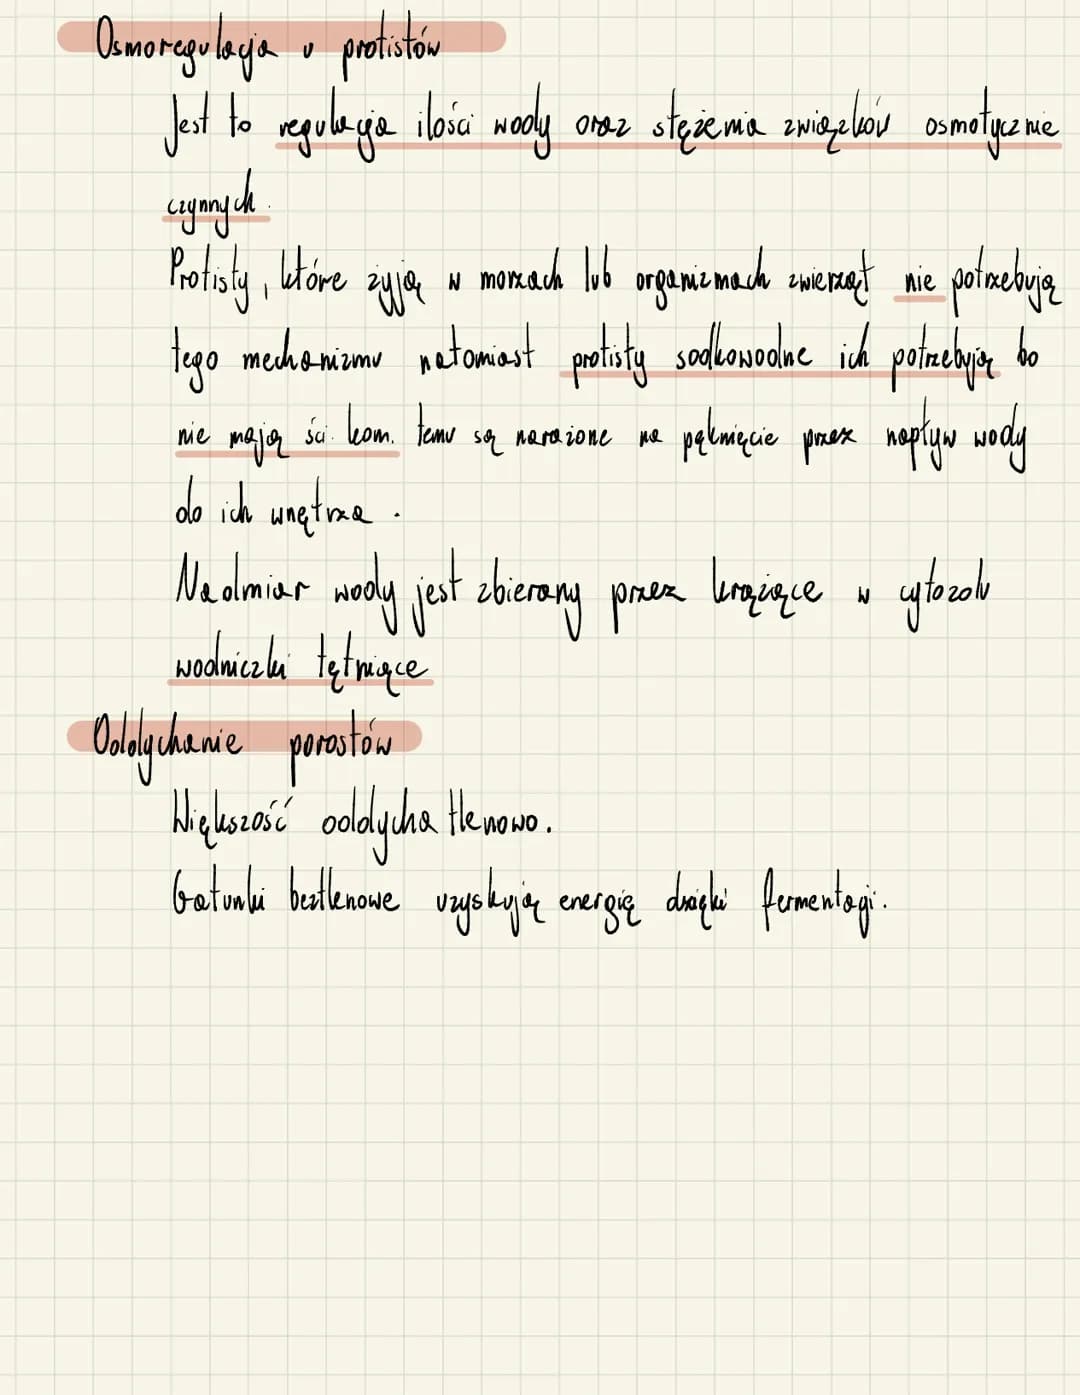 Osmoregulacja u protistów
Jest to regulacja ilości wody oraz stężenia związków osmotycznie
czynnych.
Protisty, które żyją w morzach lub organizmach zwierząt nie potrzebują
tego mechanizmu natomiast protisty sodkowodne ich potrzebują bo
nie mają ści. kom. temu są narażone na pęknięcie przez napływ wody
do ich wnętrza.
Nadmiar wody jest zbierany przez krążące w cytozolu
wodniczki tętniące
Oddychanie porostów
Większość oddycha tlenowo.
Gatunki beztlenowe uzyskują energię dzięki fermentacji.